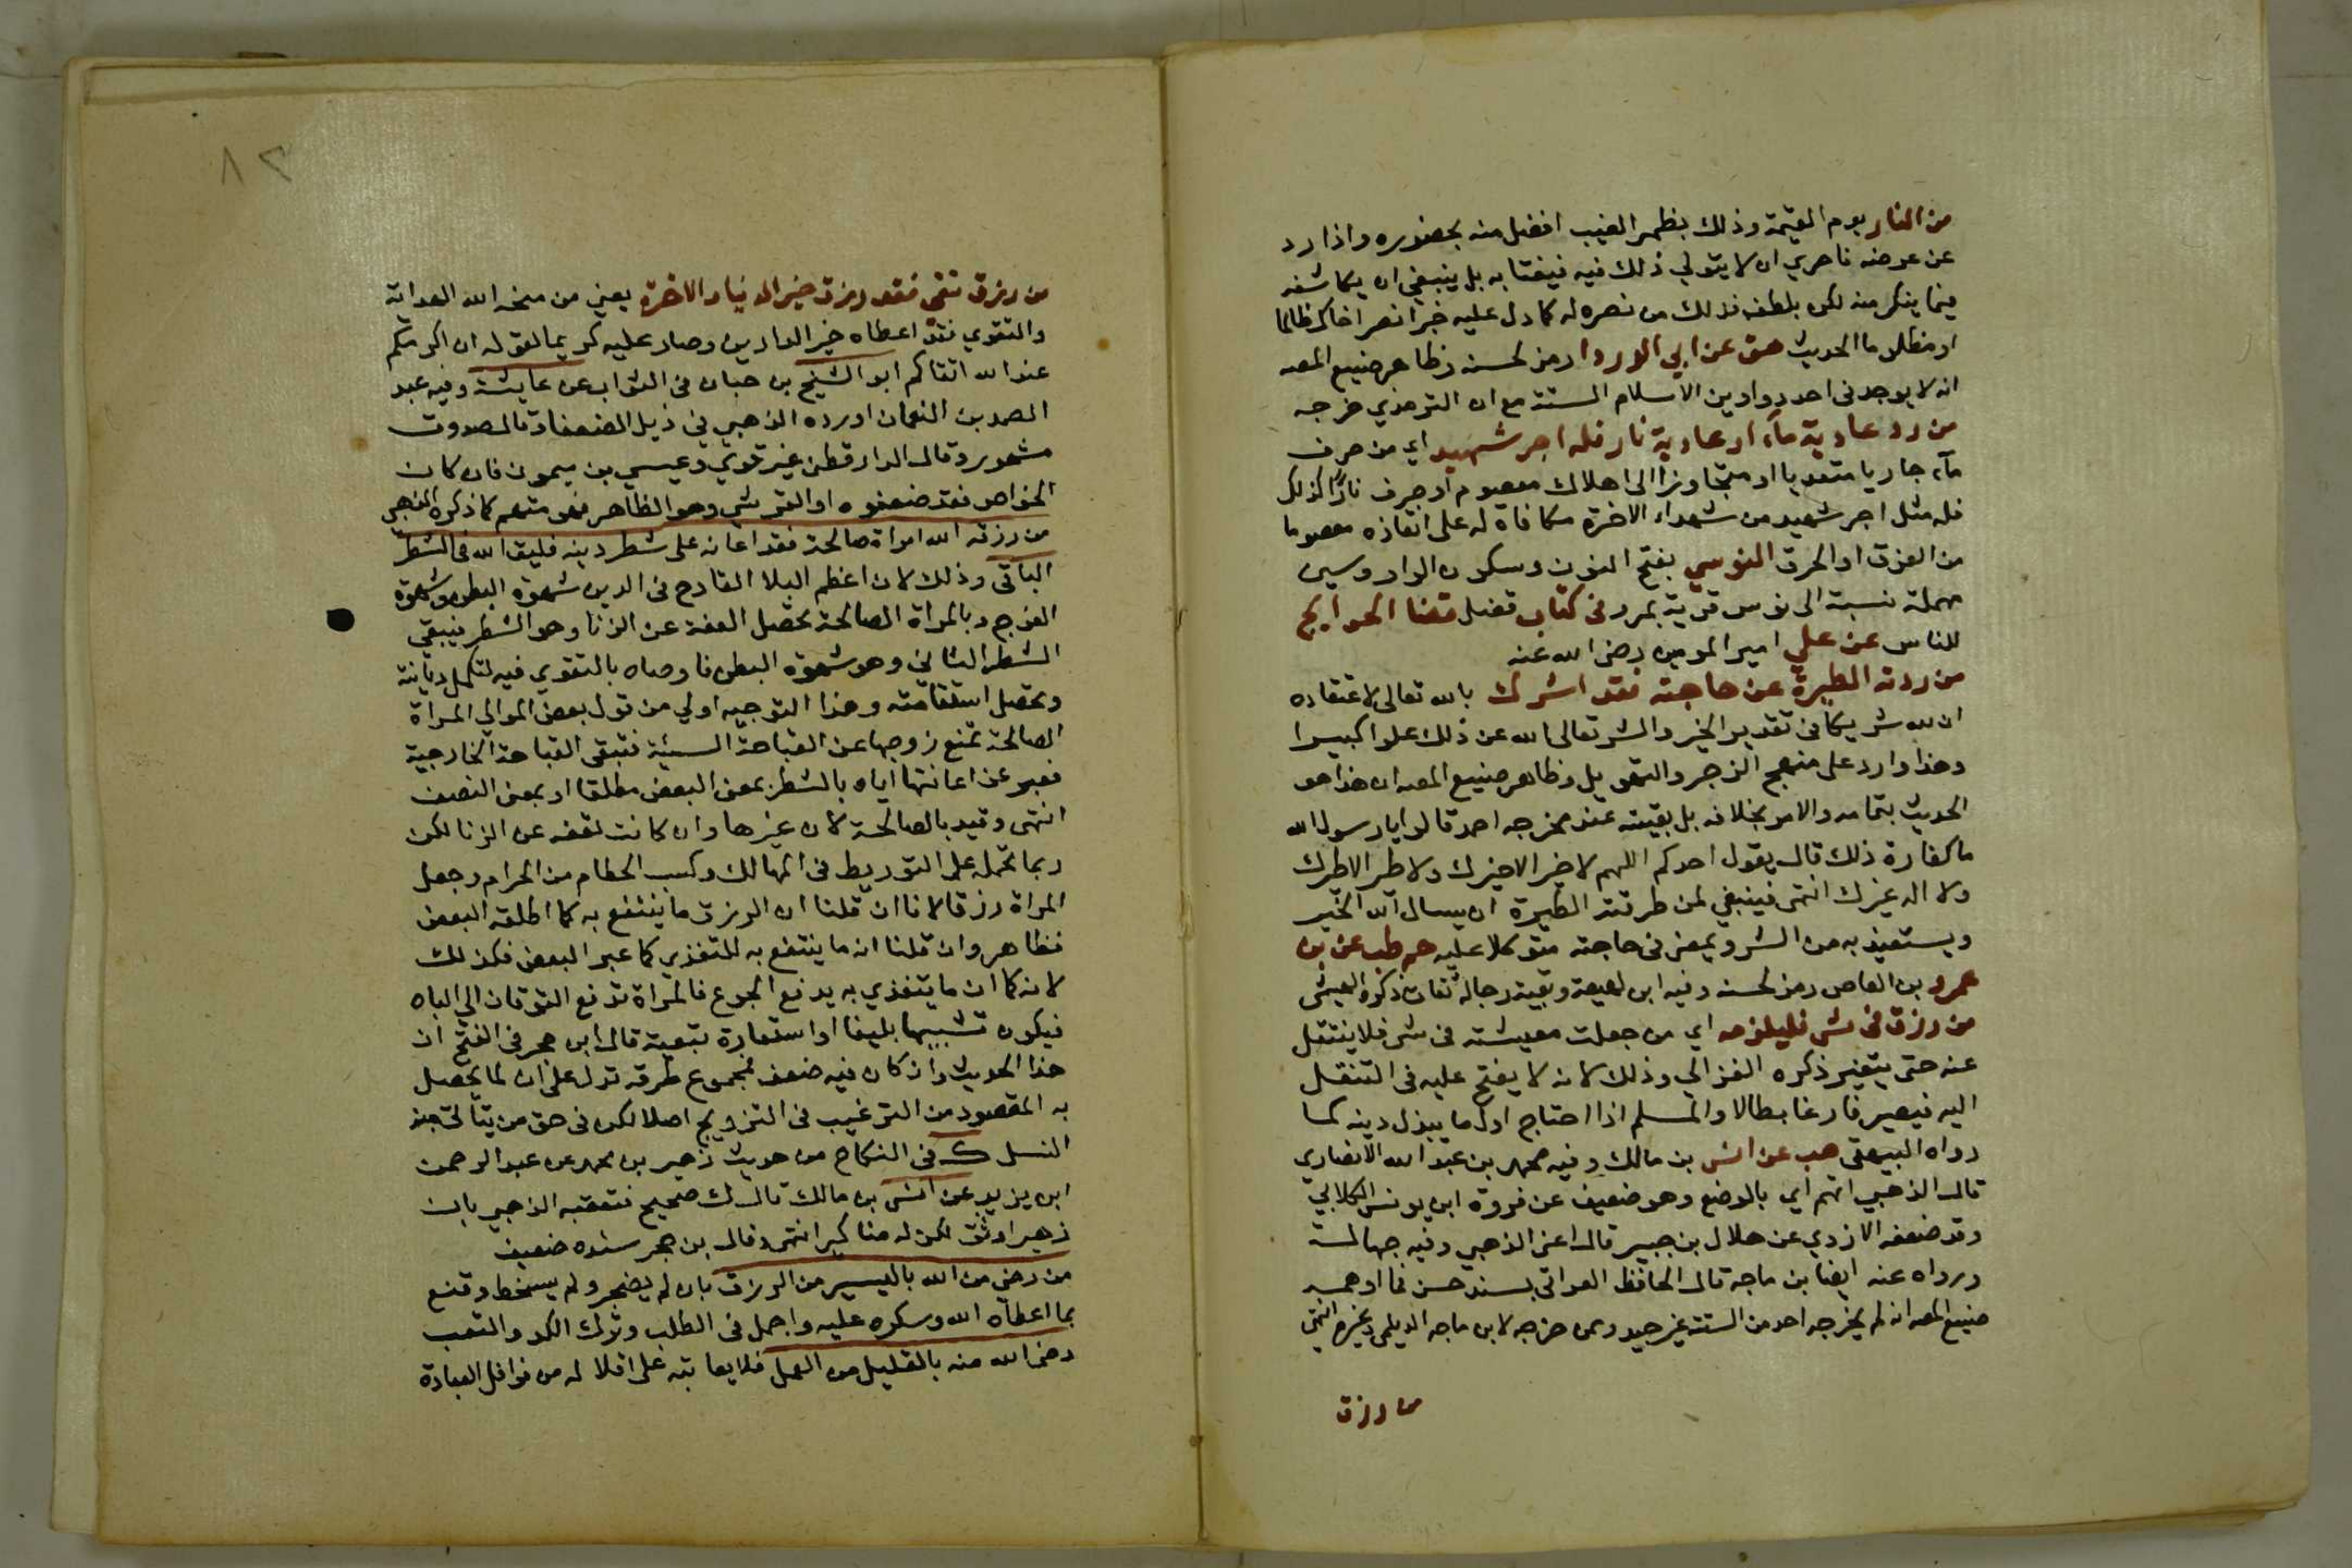 من النار يوم القيمة وذلك بظهر الغيب افضل منه بحضوره واذا رد
عن عرضه فاحري ان لا يتولي ذلك فيه فيغتابه بل ينبغي ان يكاشفه
فيما ينكر منه لكن بلطف فذلك من نصره له كما دل عليه خبر انصر اخاك ظالما
او مظلوما الحديث هق عن ابي الدردا رمز لحسنه وظاهر صنيع المصـ
انه لا يوجد في احد دواوين الاسلام الستة مع ان الترمذي خرجه
من رد عادية ماء او عادية نار فله اجر شهيد اي من صرف
ماء جاريا متعديا او متجاوزا الى اهلاك معصوم او صرف نارا كذلك
فله مثل اجر شهيد من شهداء الاخرة مكافاة له على انقاذه معصوما
من الغرق او الحرق النوسي بفتح النون وسكون الواو وسين
مهملة نسبة الى نوس قرية بمرو في كتاب فضل قضا الحوايج
للناس عن علي امير المومنين رضى الله عنه
من ردته الطيرة عن حاجته فقد اشرك بالله تعالى لاعتقاده
ان لله شريكا في تقدير الخير والشر تعالى الله عن ذلك علوا كبيرا
وهذا وارد على منهج الزجر والتهويل وظاهر صنيع المصـ ان هذا هو
الحديث بتمامه والامر بخلافه بل بقيته عند مخرجه احمد قالوا يا رسول الله
ما كفارة ذلك قال يقول احدكم اللهم لا خير الا خيرك ولا طير الا طيرك
ولا اله غيرك انتهى فينبغي لمن طرقته الطيرة ان يسال الله الخير
ويستعيذ به من الشر ويمضى في حاجته متوكلا عليه حم طب عن بن
عمرو بن العاص رمز لحسنه وفيه ابن لهيعة وبقية رجاله ثقات ذكره الهيثمى
من رزق في شى فليلزمه اي من جعلت معيشته فى شى فلا ينتقل
عنه حتى يتغير ذكره الغزالي وذلك لانه لا يفتح عليه فى التنقل
اليه فيصير فارغا بطالا والمسلم اذا احتاج اول ما يبذل دينه كما
رواه البيهقى هب عن انس بن مالك وفيه محمد بن عبد الله الانصاري
قال الذهبي اتهم اي بالوضع وهو ضعيف عن فروة ابن يونس الكلابي
وقد ضعفه الازدي عن هلال بن جبير قال اعني الذهبي وفيه جهالة
ورواه عنه ايضا بن ماجة قال الحافظ العراقي بسند حسن فما اوهمه
صنيع المصـ انه لم يخرجه احد من الستة غير جيد وممن خرجه لابن ماجه الديلمى وغيره انتهى
من رزق
٨٢
من رزق تقى فقد رزق خير الدنيا والاخرة يعني من منحه الله الهداية
والتقوي فقد اعطاه خير الدارين وصار عليه كريما لقوله ان اكرمكم
عند الله اتقاكم ابو الشيخ بن حبان فى الثواب عن عايشة وفيه عبد
الصمد بن النعمان اورده الذهبي في ذيل الضعفا وقال صدوق
مشهور وقال الدارقطنى غير قوي وعيسي بن ميمون فان كان
الخواص فقد ضعفوه او القرشي وهو الظاهر فهو متهم كما ذكره الذهبي
من رزقه الله امراة صالحة فقد اعانه على شطر دينه فليتق الله فى الشطر
الباقى وذلك لان اعظم البلا القادح في الدين شهوة البطن وشهوة
الفرج وبالمراة الصالحة تحصل العفة عن الزنا وهو الشطر فيبقي
الشطر الثاني وهو شهوة البطن فاوصاه بالتقوي فيه لتكمل ديانته
وتحصل استقامته وهذا التوجيه اولي من قول بعض الموالي المراة
الصالحة تمنع زوجها عن القباحة السيئة فتبقى القباحة الخارجية
فعبر عن اعانتها اياه بالشطر بمعنى البعض مطلقا او بمعنى النصف
انتهى وقيد بالصالحة لان غيرها وان كانت تعفه عن الزنا لكن
ربما تحمله على التوريط فى المهالك وكسب الحطام من الحرام وجعل
المراة رزقا لانا ان قلنا ان الرزق ما ينتفع به كما اطلقه البعض
فظاهر وان قلنا انه ما ينتفع به للتغذي كما عبر البعض فكذلك
لانه كما ان ما يتغذي به يدفع الجوع فالمراة تدفع التوقان الي الباه
فيكون تشبيها بليغا او استعارة تبعية قال ابن حجر في الفتح ان
هذا الحديث وان كان فيه ضعف فمجموع طرقه تدل على ان لما يحصل
به المقصود من الترغيب فى التزويج اصلا لكن فى حق من يتاتى منه
النسل ك فى النكاح من حديث زهير بن محمد عن عبد الرحمن
ابن يزيد عن انس بن مالك قال ك صحيح فتعقبه الذهبي بان
زهير اوثق لكن له مناكير انتهى وقال بن حجر سنده ضعيف
من رضى من الله باليسير من الرزق بان لم يضجر ولم يسخط وقنع
بما اعطاه الله وشكره عليه واجمل فى الطلب وترك الكد والتعب
رضى الله منه بالقليل من العمل فلا يعاتبه على اقلاله من نوافل العبادة